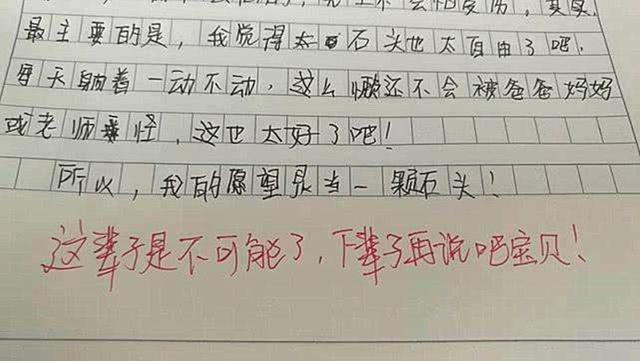 最主要的是，我觉得太石头也太自由了吧，
每天躺着一动不动，这么懒还不会被爸爸妈妈
或老师乖怪，这也太好了吧！
所以，我的愿望是当一颗石头！
这辈子是不可能了，下辈子再说吧宝贝！